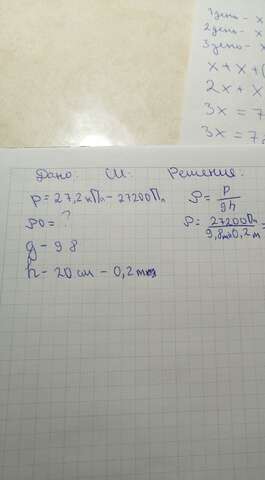 1 день - x
2 день - x
3 день - x
x + x +
2x + x
3x = 7
3x = 7
Дано: СИ: Решение:
P = 27,2 кПа - 27200 Па
ρ = P / gh
ρ0 = ?
ρ = 27200 Па / 9,8 0,2 м =
g - 9 8
h - 20 см - 0,2 м